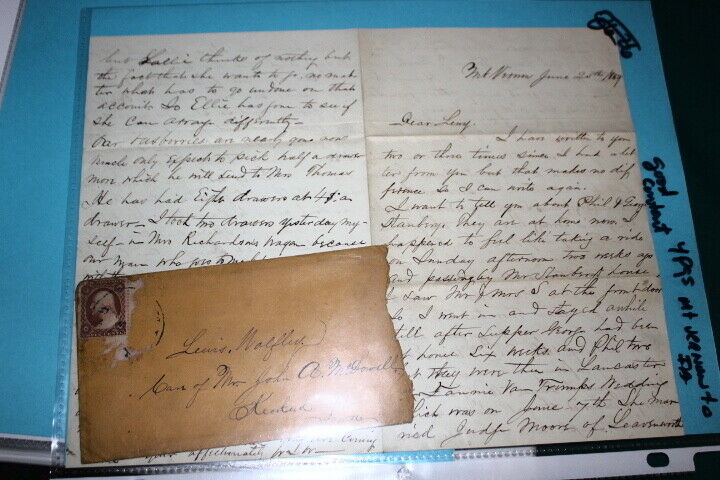 but Sallie thinks of nothing but
the fact that she wants to go, no mat
ter what has to go undone on that
account. So Ellie has gone to see if
she can arrange differently—
Our rasberries are nearly gone now
Uncle only expects to pick half a drawer
more which he will send to Mrs Thomas
He has had Eight drawers at 4$ a
drawer— I took two drawers yesterday my-
self in Mrs Richardsons wagon because
our man who
Mt. Vernon June 20th
Dear Lewy.
I have written to you
two or three times since I had a let
ter from you but that makes no dif
ference so I can write again.
I want to tell you about Phil & George
Stanbery. They are at home now. I
happened to feel like taking a ride
on Sunday afternoon two weeks ago
and passing by Mr Stanbery's house
I saw Mr & Mrs S at the front door
So I went in and stayed awhile
till after supper George had been
at home six weeks and Phil two
they were then in Lancaster
Fannie Van Trumps Wedding
which was on June 7th She mar
ried Judge Moore of Leavenworth
Lewis
Care of Mr John A.
affectionately
good
content
4 pgs
mt vernon to